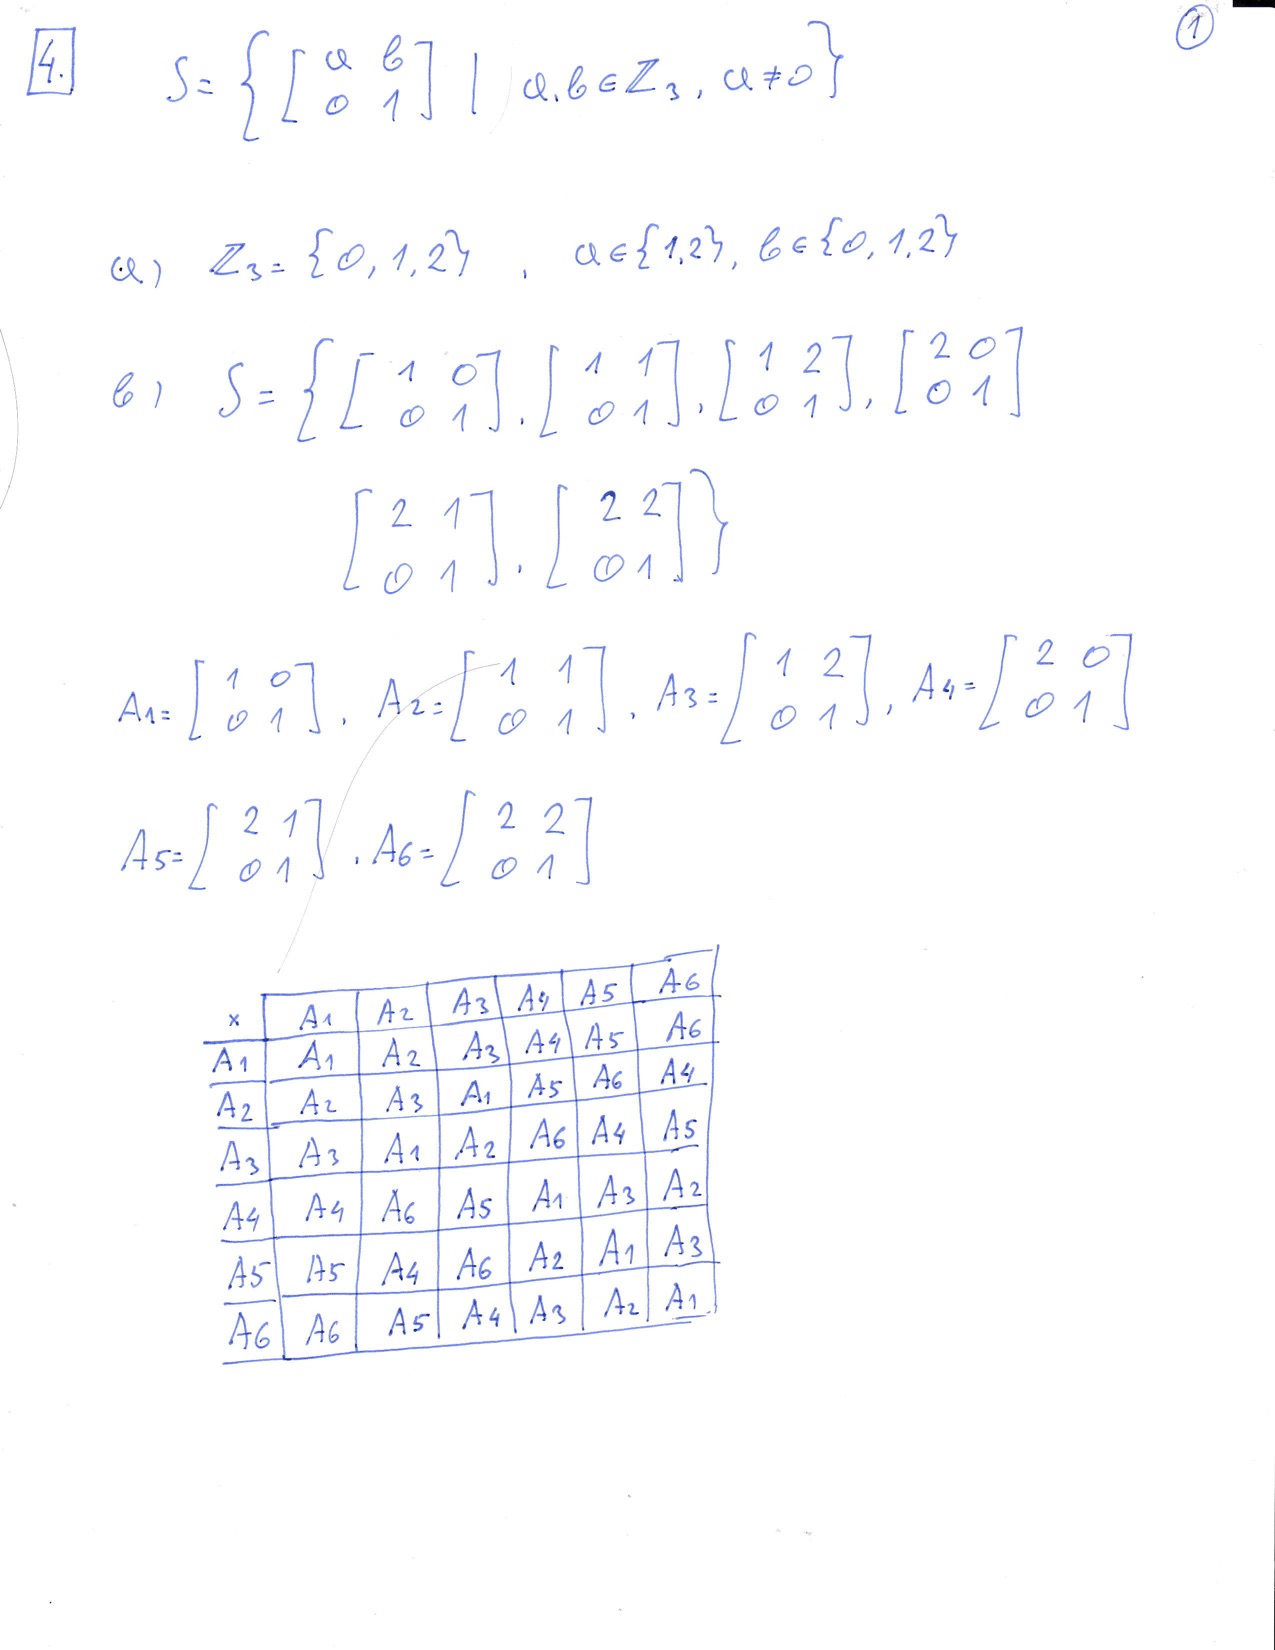 ①
4. S = { [ a b ] | a, b ∈ ℤ₃, a ≠ 0 }
[ 0 1 ]
a) ℤ₃ = {0, 1, 2} , a ∈ {1, 2}, b ∈ {0, 1, 2}
b) S = { [ 1 0 ], [ 1 1 ], [ 1 2 ], [ 2 0 ]
[ 0 1 ], [ 0 1 ], [ 0 1 ], [ 0 1 ]
[ 2 1 ], [ 2 2 ] }
[ 0 1 ], [ 0 1 ]
A1 = [ 1 0 ], A2 = [ 1 1 ], A3 = [ 1 2 ], A4 = [ 2 0 ]
[ 0 1 ], [ 0 1 ], [ 0 1 ], [ 0 1 ]
A5 = [ 2 1 ], A6 = [ 2 2 ]
[ 0 1 ], [ 0 1 ]
x A1 A2 A3 A4 A5 A6
A1 A1 A2 A3 A4 A5 A6
A2 A2 A3 A1 A5 A6 A4
A3 A3 A1 A2 A6 A4 A5
A4 A4 A6 A5 A1 A3 A2
A5 A5 A4 A6 A2 A1 A3
A6 A6 A5 A4 A3 A2 A1